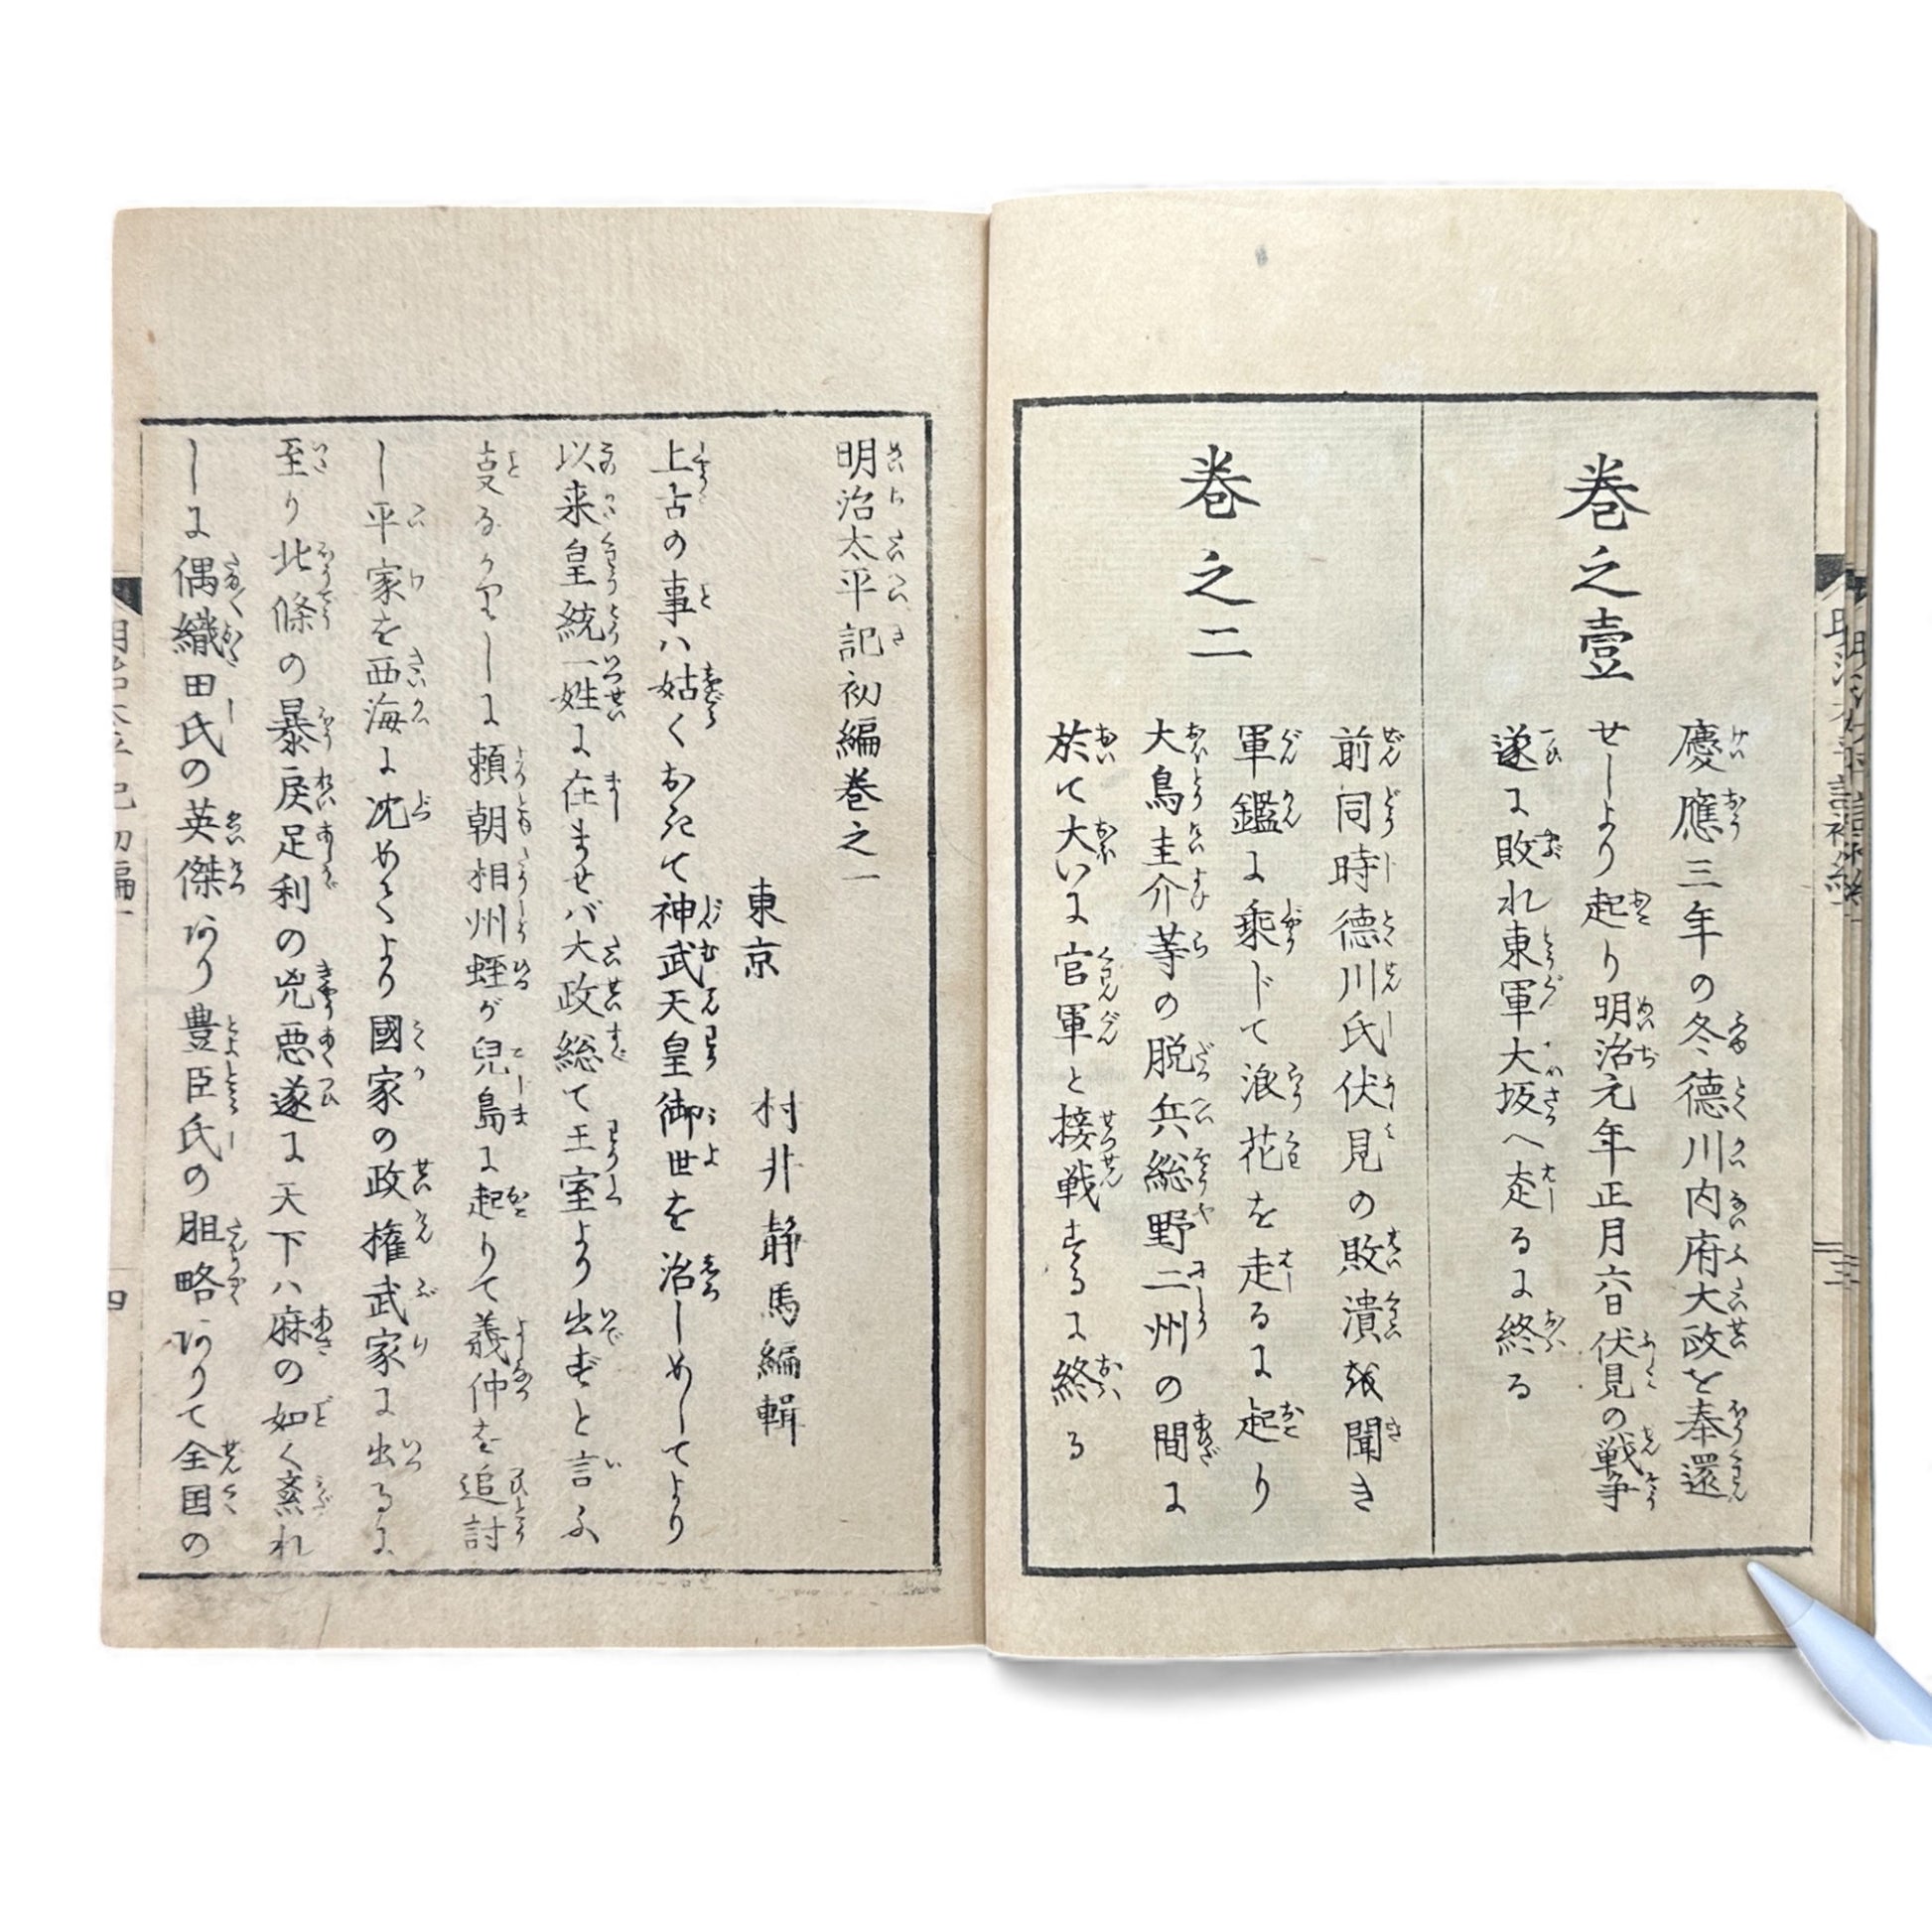 巻之壹
慶應三年の冬德川内府大政を奉還
せしより起り明治元年正月六日伏見の戦争
遂に敗れ東軍大坂へ走るに終る
巻之二
前同時德川氏伏見の敗潰を聞き
軍鑑に乗じて浪花を走るに起り
大鳥圭介等の脱兵総野二州の間に
於て大いに官軍と接戦するに終る
明治太平記初編巻之一
東京 村井静馬編輯
上古の事ハ姑くおきて神武天皇御世を治しめしてより
以来皇統一姓に在ませバ大政総て王室より出ずと言ふ
支るかりしに頼朝相州蛭が兒島に起りて義仲を追討
し平家を西海に沈めてより國家の政権武家に出るに
至り北條の暴戻足利の兇悪遂に天下ハ麻の如く紊れ
しに偶織田氏の英傑あり豊臣氏の胆略ありて全国の